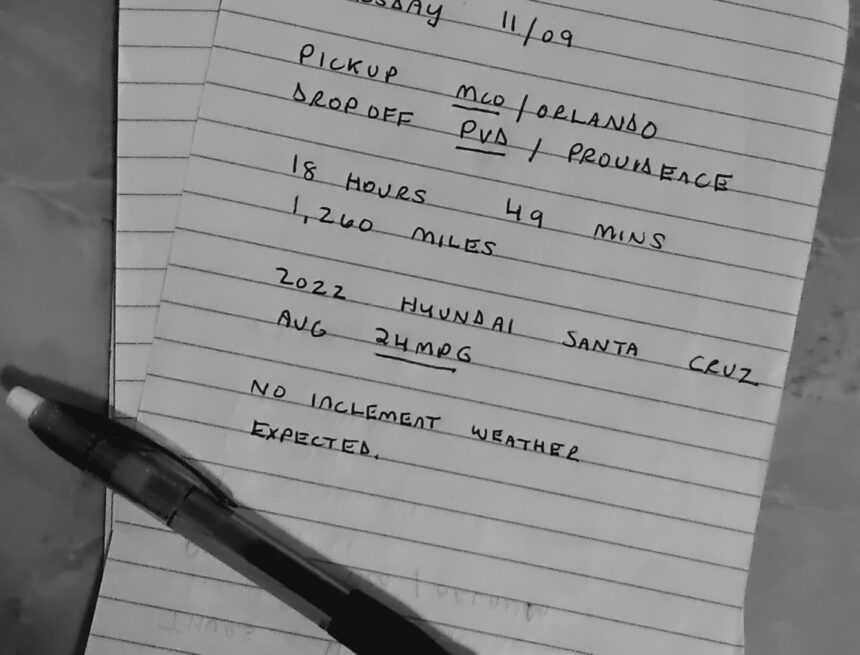 11/09
PICKUP MCO / ORLANDO
DROP OFF PVD / PROVIDENCE
18 HOURS 49 MINS
1,260 MILES
2022 HYUNDAI SANTA CRUZ
AVG 24MPG
NO INCLEMENT WEATHER
EXPECTED.